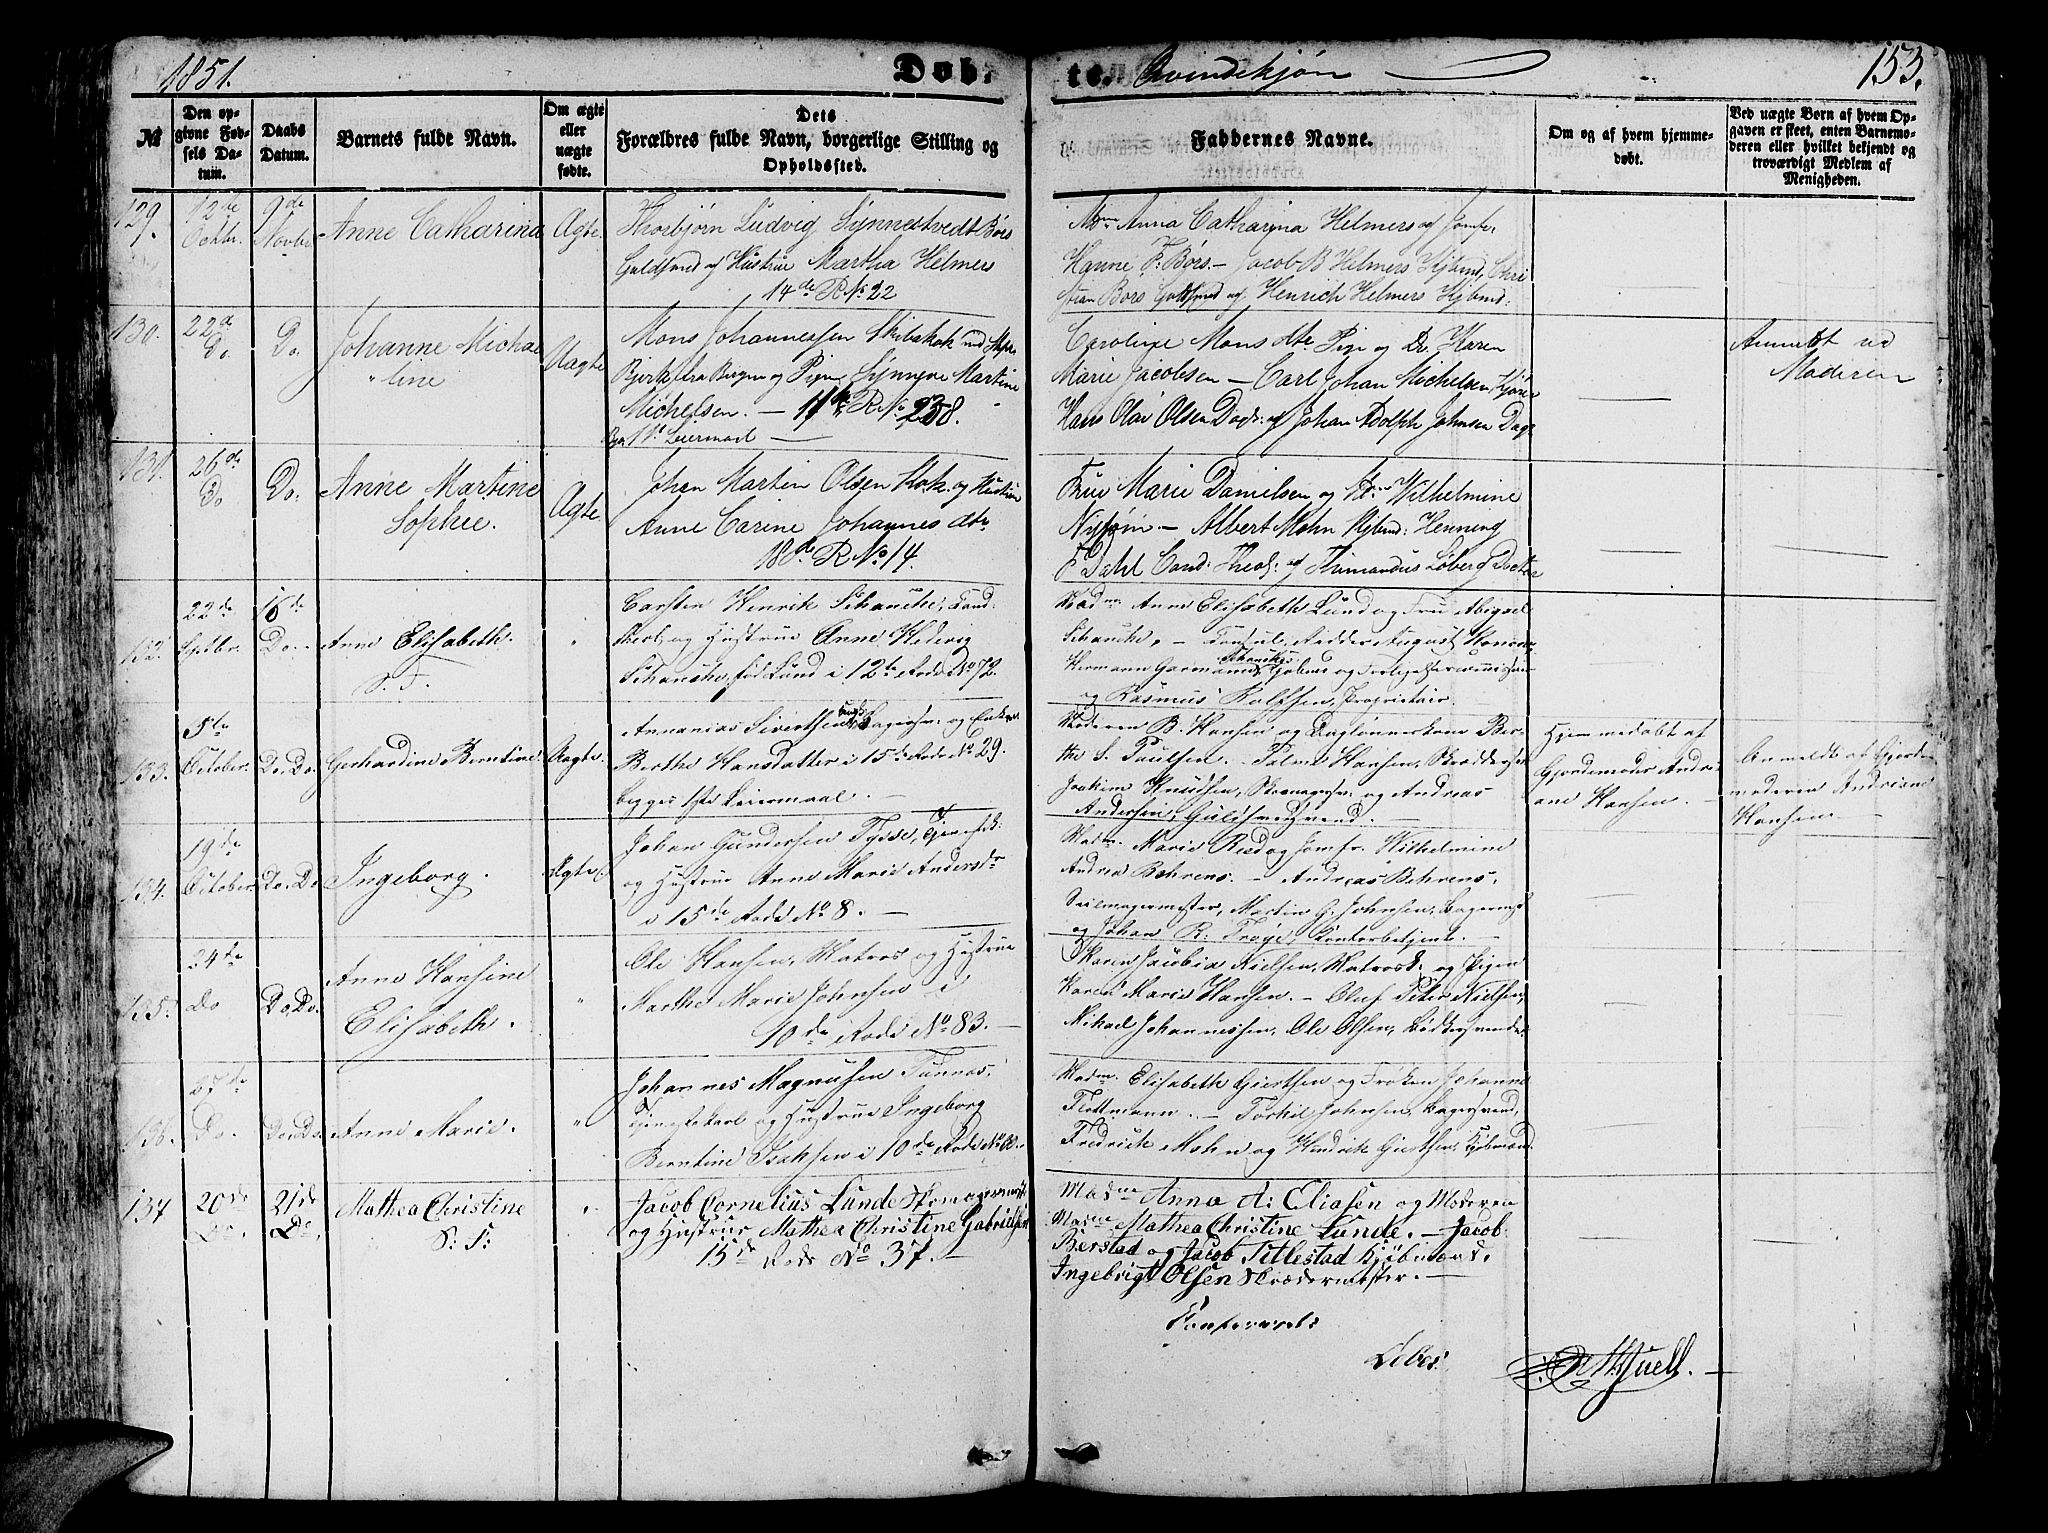 1851.
Døb-
te. Qvindekjøn
153.
№
Den op-
givne Fød-
sels Da-
tum.
Daabs
Datum.
Barnets fulde Navn.
Om ægte
eller
uægte
fødte.
Dets
Forældres fulde Navn, borgerlige Stilling og
Opholdssted.
Faddernes Navne.
Om og af hvem hjemme-
døbt.
Ved uægte Børn af hvem Op-
gaven er skeet, enten Barnemo-
deren eller hvilket bekjendt og
troværdigt Medlem af
Menigheden.
129.
12de
Octbr.
9de
Novbr.
Anne Catharina
Ægte.
Thorbjørn Ludvig Synnestvedt Børs
Guldsmed og Hustrue Martha Helmers
14de R No 22
Mdm Anna Catharina Helmers og Jomfr.
Hanne F. Børs. — Jacob B Helmers Kjbmd, Chri
stian Børs Guldsmed og Henrich Helmers Kjbmd.
130.
22d
Do
Do.
Johanne Michae
"line
Uægte
Mons Johannessen Skibskok
Bjerk fra Bergen og Pigen Synneve Martine
Michelsen. — 11te R No 238.
1ste Leiermaal —
Caroline Mons dtr Pige og Do. Karen
Marie Jacobsen — Carl Johan Michelsen
Hans Olai Olsen Dagk: og Johan Adolph Johnsen Dagk
Anmeldt ved
Moderen
131.
26de
Do
Do.
Anne Martine
Sophie.
Ægte.
Johan Martin Olsen Kok og Hustrue
Anne Carine Johannes dtr.
18de R No 14.
Frue Marie Danielsen og Wilhelmine
— Albert Mohn Kjbmd: Henning
F Dahl Cand: Theol: og Thimandus Løberg Doctor
132.
22de
Septbr.
16de
Do.
Anne Elisabeth.
S. F.
Carsten Henrik Schanche,
og Hustrue Anne Hedevig
Schanche, fød Lund i 12te Rode No 72.
Madm. Anne Elisabeth Lund og Fru Abigael
Schanche. — Consul, Ridder August
Hermann Garmann Schanche,
og Rasmus Rolfsen, Proprietair.
133.
5te
October.
Do. Do.
Gerhardine Berntine.
Uægte.
Annanias Sivertsen, og Enke
Berthe Hansdatter i 15de Rode No 29.
begges 1ste Leiermaal. —
Moderen B. Hansen og Daglønnerskone Ber-
the S. Paulsen. — Palme Hansen, Skræddersv.
Joakim Knudsen, og Andreas
Andersen, Guldsmedsvend. —
Hjemmedøbt af
Gjordemoder Andri-
ane Hansen. —
Anmeldt af Gjorde-
moderen Andriane
Hansen —
134.
19de
October.
Do. Do.
Ingeborg.
Ægte.
Johan Gundersen Tysse, Tjenestek:
og Hustrue Anne Marie Andersdr
i 15de Rode No 8. —
Madm. Marie Risd og Jomfr. Wilhelmine
Andrea Behrens. — Andreas Behrens,
Seilmagermester, Martin G. Johnsen,
og Johan R. Troye, Kontorbetjent. —
135.
24de
Do
Do. Do.
Anne Hansine
Elisabeth.
"
Ole Hansen, Matros og Hustrue
Marthe Marie Johnsen i
10de Rode No 83. —
Karen Jacobia Nielsen, Matrosk. og Pigen
Karen Marie Hansen. — Oluf Peter Nielsen,
Mikael Johannessen, Ole Olsen, Bødkersvende.
136.
27de
Do.
Do. Do.
Anne Marie.
"
Johannes Magnusen Tunnes,
Tjenestekarl og Hustrue Ingeborg
Berntine Isaksen i 10de Rode No 60.
Madm. Elisabeth Giertsen og Frøken Johanne
Flottmann. — Torkil Johnsen, Bagersvend,
Fredrick Mohn og Hendrik Giertsen, Kjøbmænd.
137
20de
Do.
21de
Do
Mathea Christine
S. F.
"
Jacob Cornelius Lunde Skomagermest
og Hustrue Mathea Christine Gabrielsen
15de Rode No 37. —
Madme Anna A: Eliasen og Moderen
Madme Mathea Christine Lunde. — Jacob
Berstad og Jacob Titlestad Kjøbmænd.
Ingebrigt Olsen Skrædermester. —
Confereret